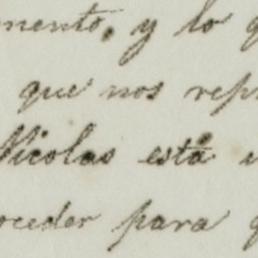 mento, y lo q
que nos rep
Nicolas está
oceder para q